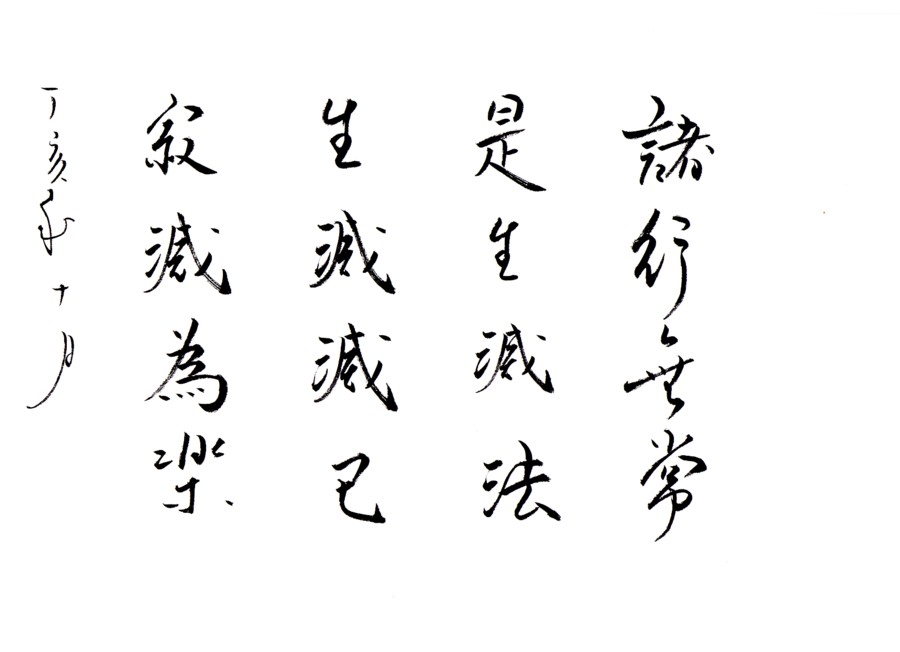 諸行無常
是生滅法
生滅滅已
寂滅為楽
丁亥年十月